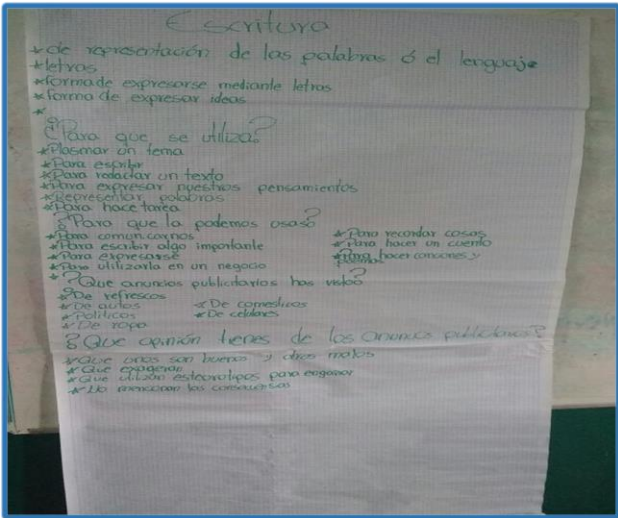 Escritura
* de representación de las palabras ó el lenguaje
* letras
* forma de expresarse mediante letras
* forma de expresar ideas
*
¿Para que se utiliza?
* Plasmar un tema
* Para escribir
* Para redactar un texto
* Para expresar nuestros pensamientos
* Representar palabras
* Para hace tarea
¿Para que la podemos usas?
* Para comunicarnos
* Para escribir algo importante
* Para expresarse
* Para utilizarla en un negocio
* Para recordar cosas
* Para hacer un cuento
* Para hacer canciones y
poemas
* ¿Que anuncios publicitarios has visto?
* De refrescos
* De autos
* Politicos
* De ropa
* De cosmeticos
* De celulares
¿Que opinión tienes de los anuncios publicitarios?
* Que unos son buenos y otros malos
* Que exageran
* Que utilizan estereotipos para engañar
* No mencionan las consecuencias